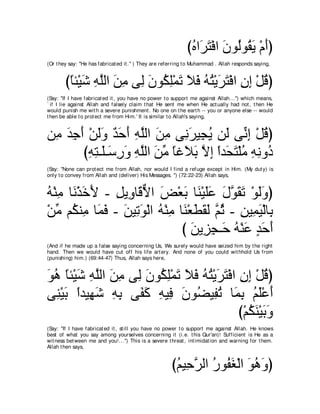 (أَمْ يَقُولُونَ افْتَرَاهُ)
(Or they say: "He has fabricated it." ( They are referring to Muhammad . Allah responds saying,
(قُلْ إِنِ افْتَرَيْتُهُ فَلاَ تَمْلِكُونَ لِي مِنَ اللَّهِ شَيْئاً)
(Say: "If I have fabricated it, you have no power to support me against Allah...") which means,
`if I lie against Allah and falsely claim that He sent me when He actually had not, then He
would punish me with a severe punishment. No one on the earth -- you or anyone else -- would
then be able to protect me from Him.' It is similar to Allah's saying,
(قُلْ إِنِّى لَن يُجِيرَنِى مِنَ اللَّهِ أَحَدٌ وَلَنْ أَجِدَ مِن
دُونِهِ مُلْتَحَداً إِلاَّ بَلاَغاً مِّنَ اللَّهِ وَرِسَـلَـتِهِ)
(Say: "None can protect me from Allah, nor would I find a refuge except in Him. (My duty) is
only to convey from Allah and (deliver) His Messages. ") (72:22-23) Allah says,
(وَلَوْ تَقَوَّلَ عَلَيْنَا بَعْضَ الاٌّقَاوِيلِ - لأَخَذْنَا مِنْهُ
بِالْيَمِينِ - ثُمَّ لَقَطَعْنَا مِنْهُ الْوَتِينَ - فَمَا مِنكُم مِّنْ
أَحَدٍ عَنْهُ حَـجِزِينَ )
(And if he made up a false saying concerning Us, We surely would have seized him by the right
hand. Then we would have cut off his life artery. And none of you could withhold Us from
(punishing) him.) (69:44-47) Thus, Allah says here,
(قُلْ إِنِ افْتَرَيْتُهُ فَلاَ تَمْلِكُونَ لِي مِنَ اللَّهِ شَيْئاً هُوَ
أَعْلَمُ بِمَا تُفِيضُونَ فِيهِ كَفَى بِهِ شَهِيداً بَيْنِى
وَبَيْنَكُمْ)
(Say: "If I have fabricated it, still you have no power to support me against Allah. He knows
best of what you say among yourselves concerning it (i.e. this Qur'an)! Sufficient is He as a
witness between me and you!...") This is a severe threat, intimidation and warning for them.
Allah then says,
(وَهُوَ الْغَفُورُ الرَّحِيمُ)